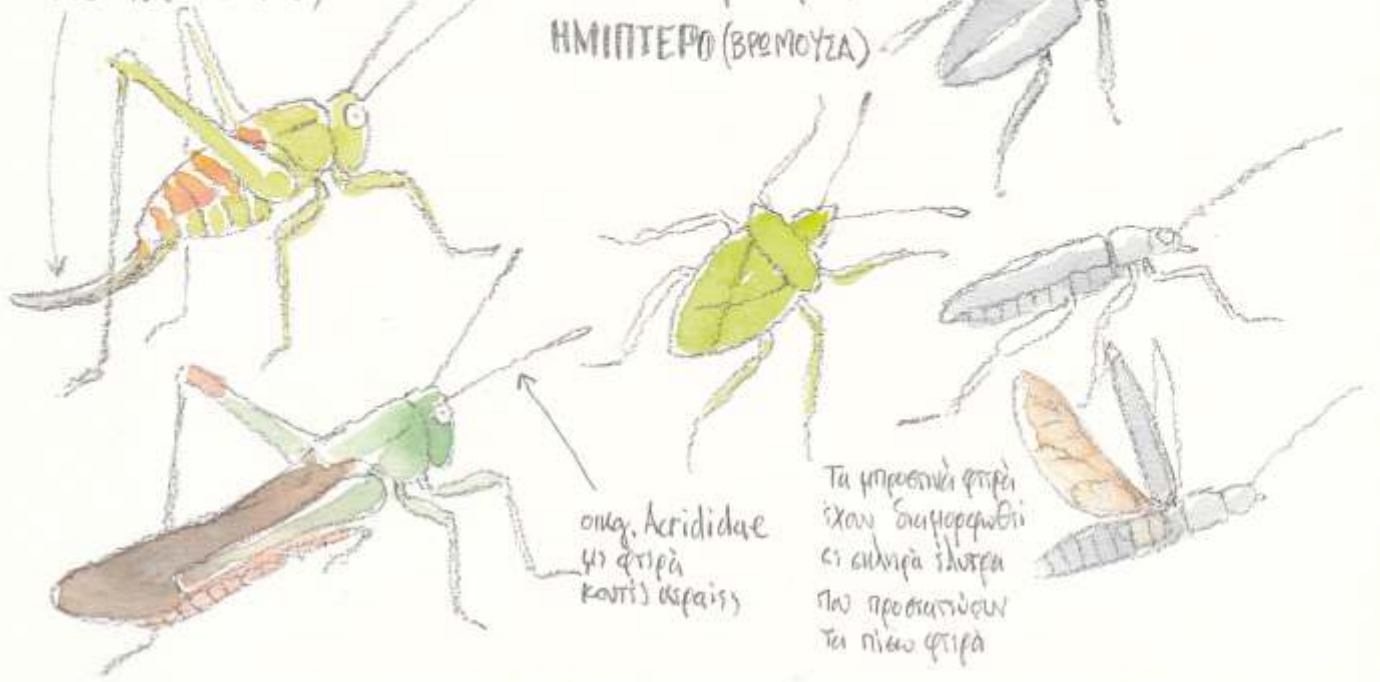 ΗΜΙΠΤΕΡΟ (ΒΡΩΜΟΥΣΑ)
οικ. Acrididae
με φτερά
κοντές κεραίες
Τα μπροστινά φτερά
έχουν διαμορφωθεί
σε σκληρά έλυτρα
που προστατεύουν
τα πίσω φτερά